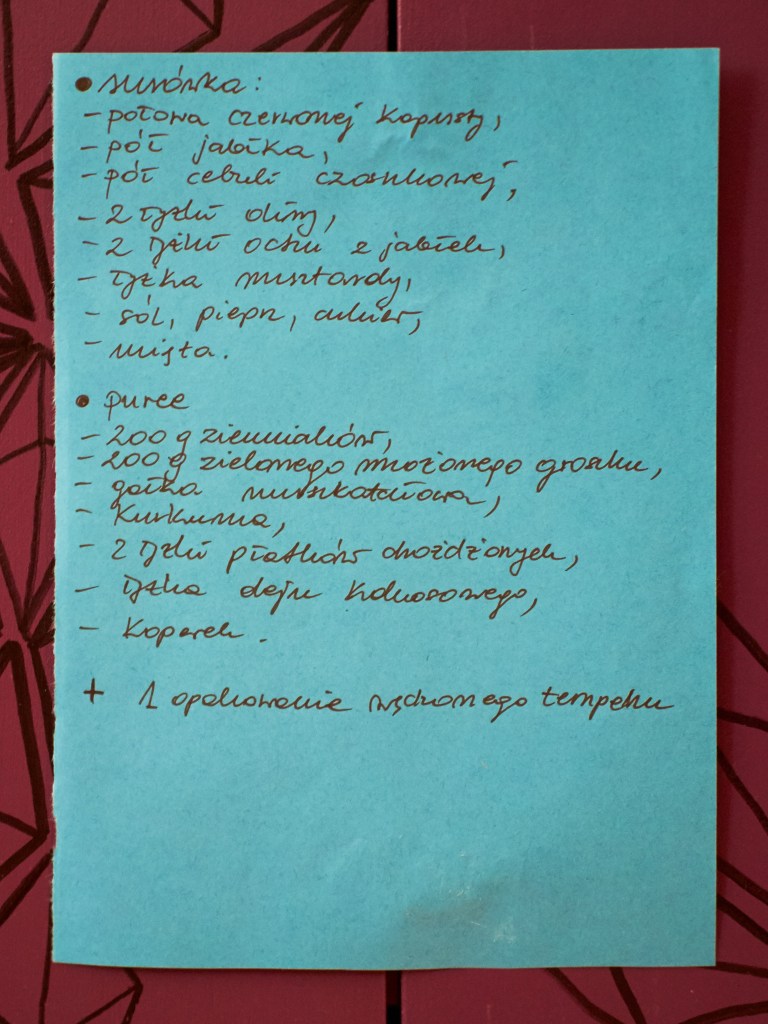 • surówka:
- połowa czerwonej kapusty,
- pół jabłka,
- pół cebuli czosnkowej,
- 2 łyżki oliwy,
- 2 łyżki octu z jabłek,
- łyżka musztardy,
- sól, pieprz, cukier,
- mięta.
• puree
- 200 g ziemniaków,
- 200 g zielonego mrożonego groszku,
- gałka muszkatałowa,
- kurkuma,
- 2 łyżki płatków drożdżonych,
- łyżka oleju kokosowego,
- koperek.
+ 1 opakowanie wędzonego tempehu